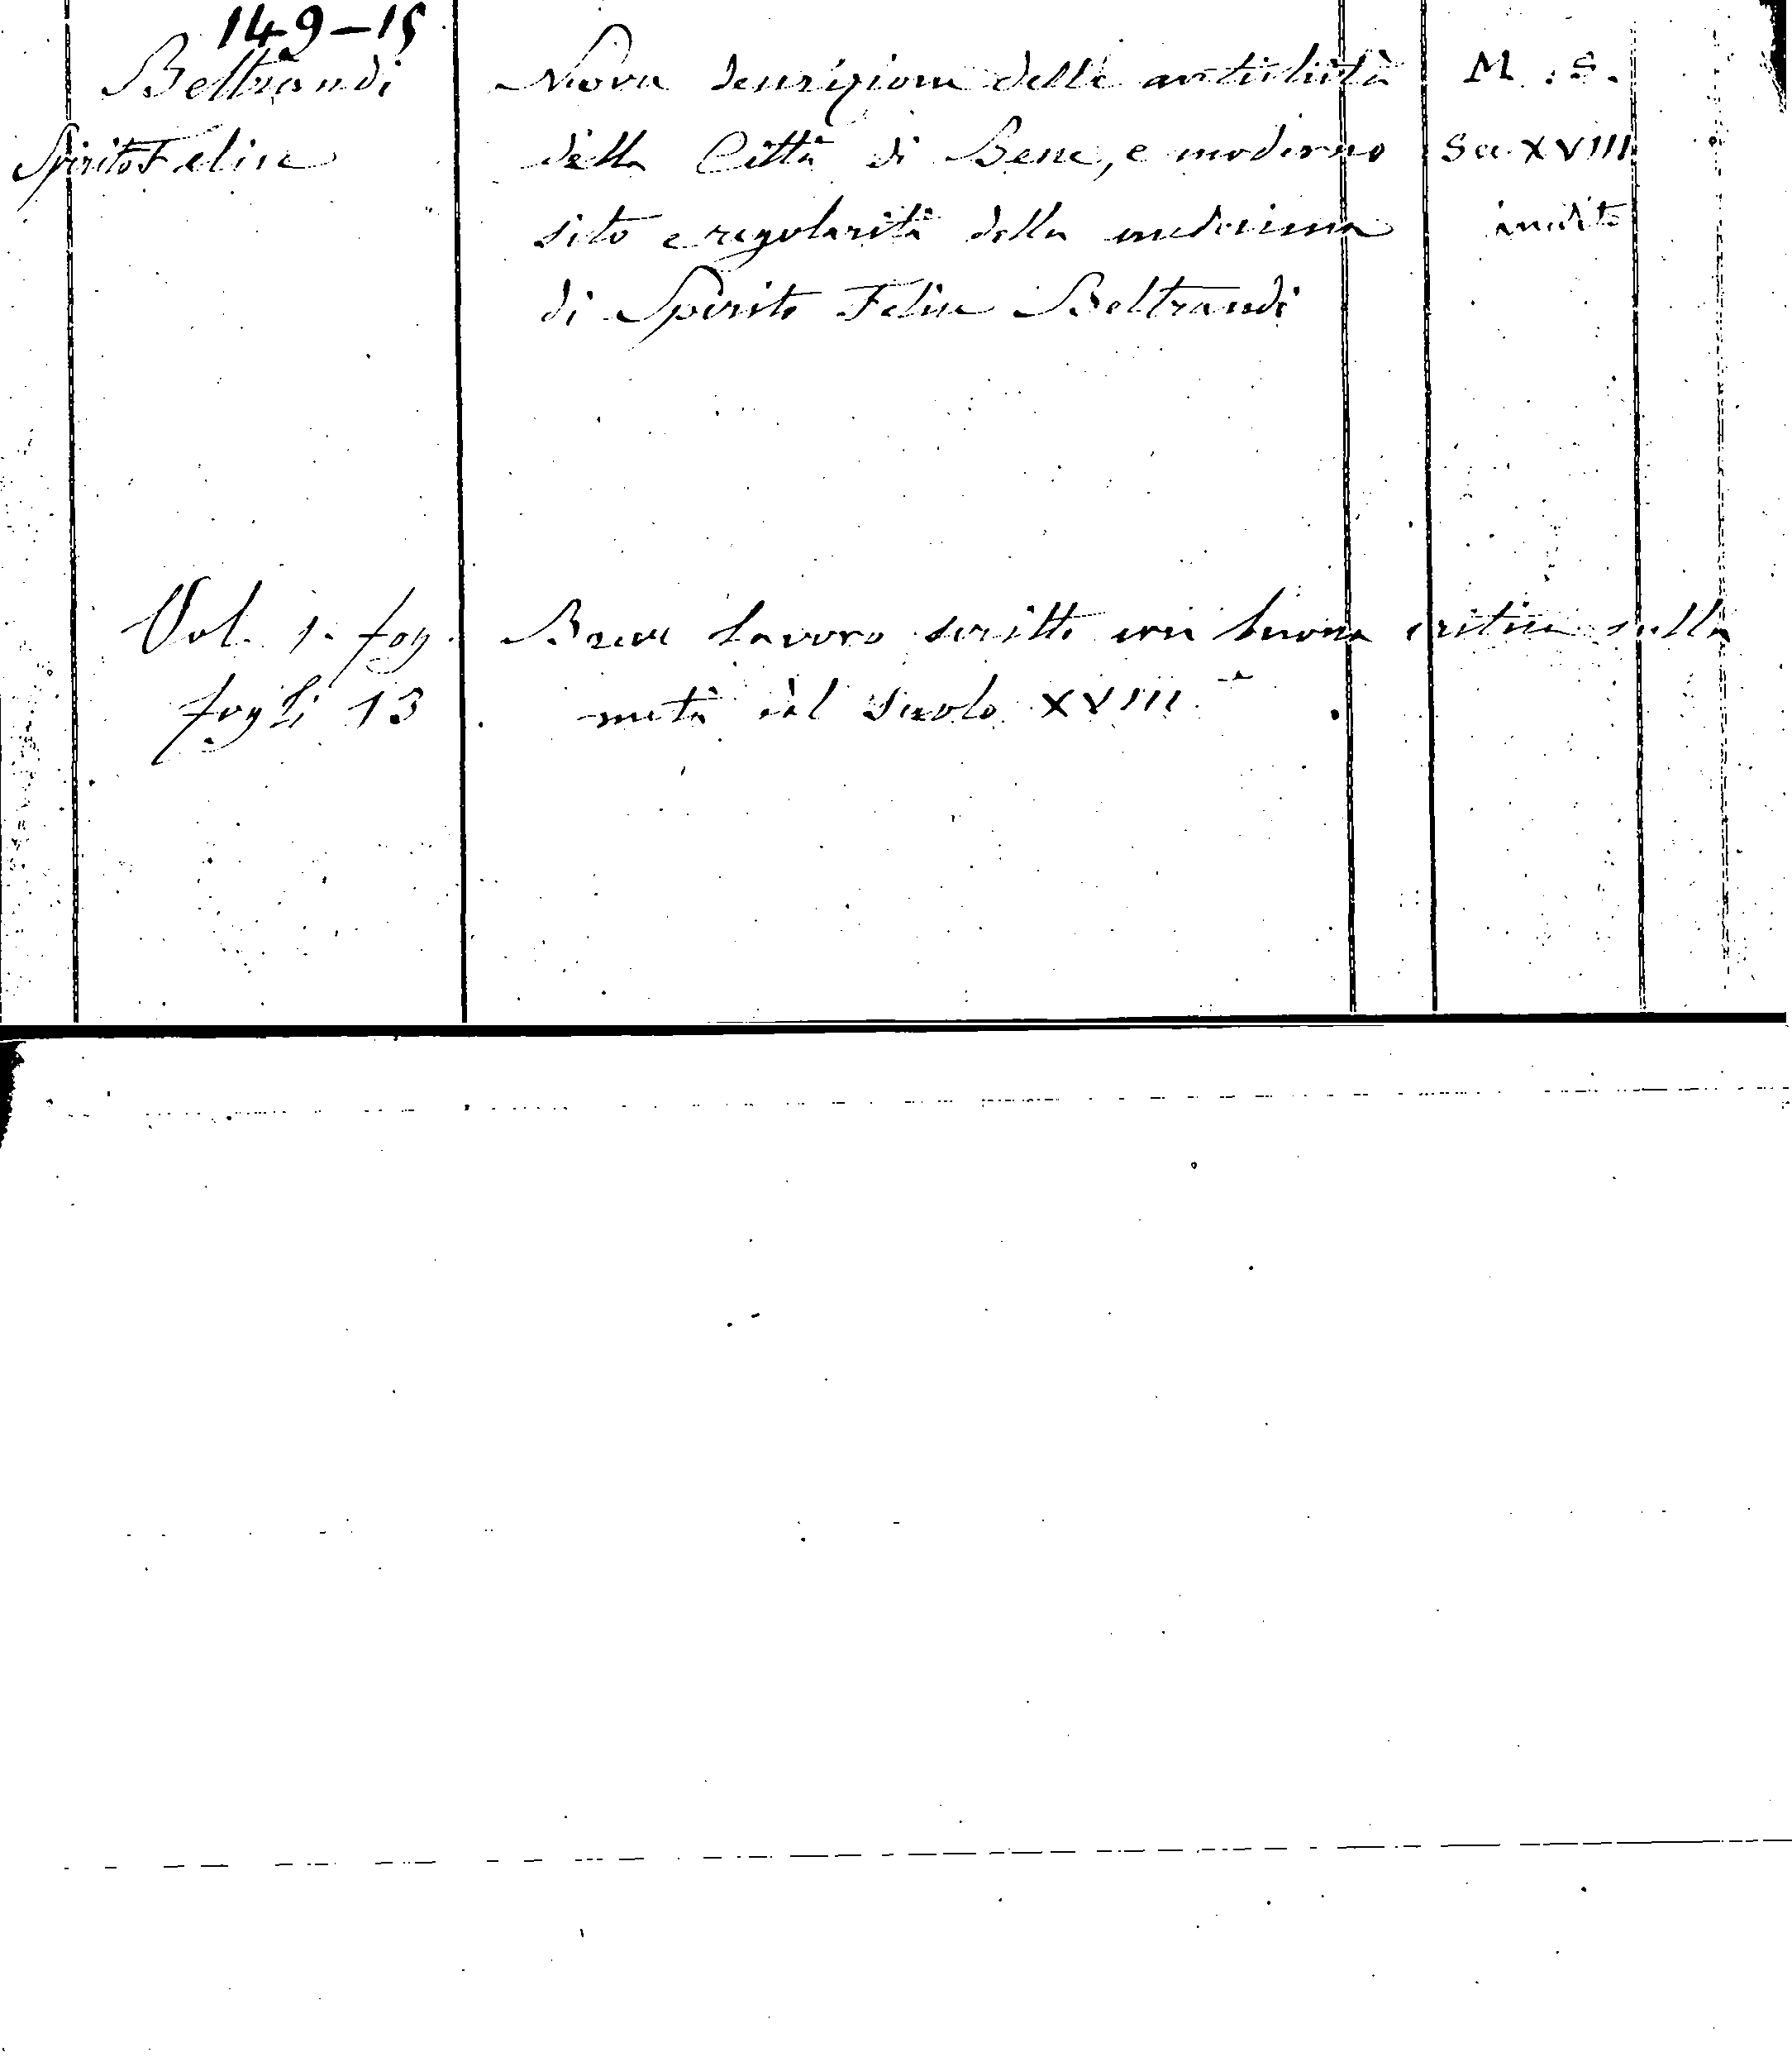 149-15
Beltrandi
Spirito Felice
Nova descrizione delle antichità
della Città di Bene, e moderno
sito e regolarità della medesima
di Spirito Felice Beltrandi
M.S.
Sec XVIII
inedito
Vol. 1. fog.
fogli 13
Breve lavoro scritto con buona critica sulla
metà del secolo XVIII